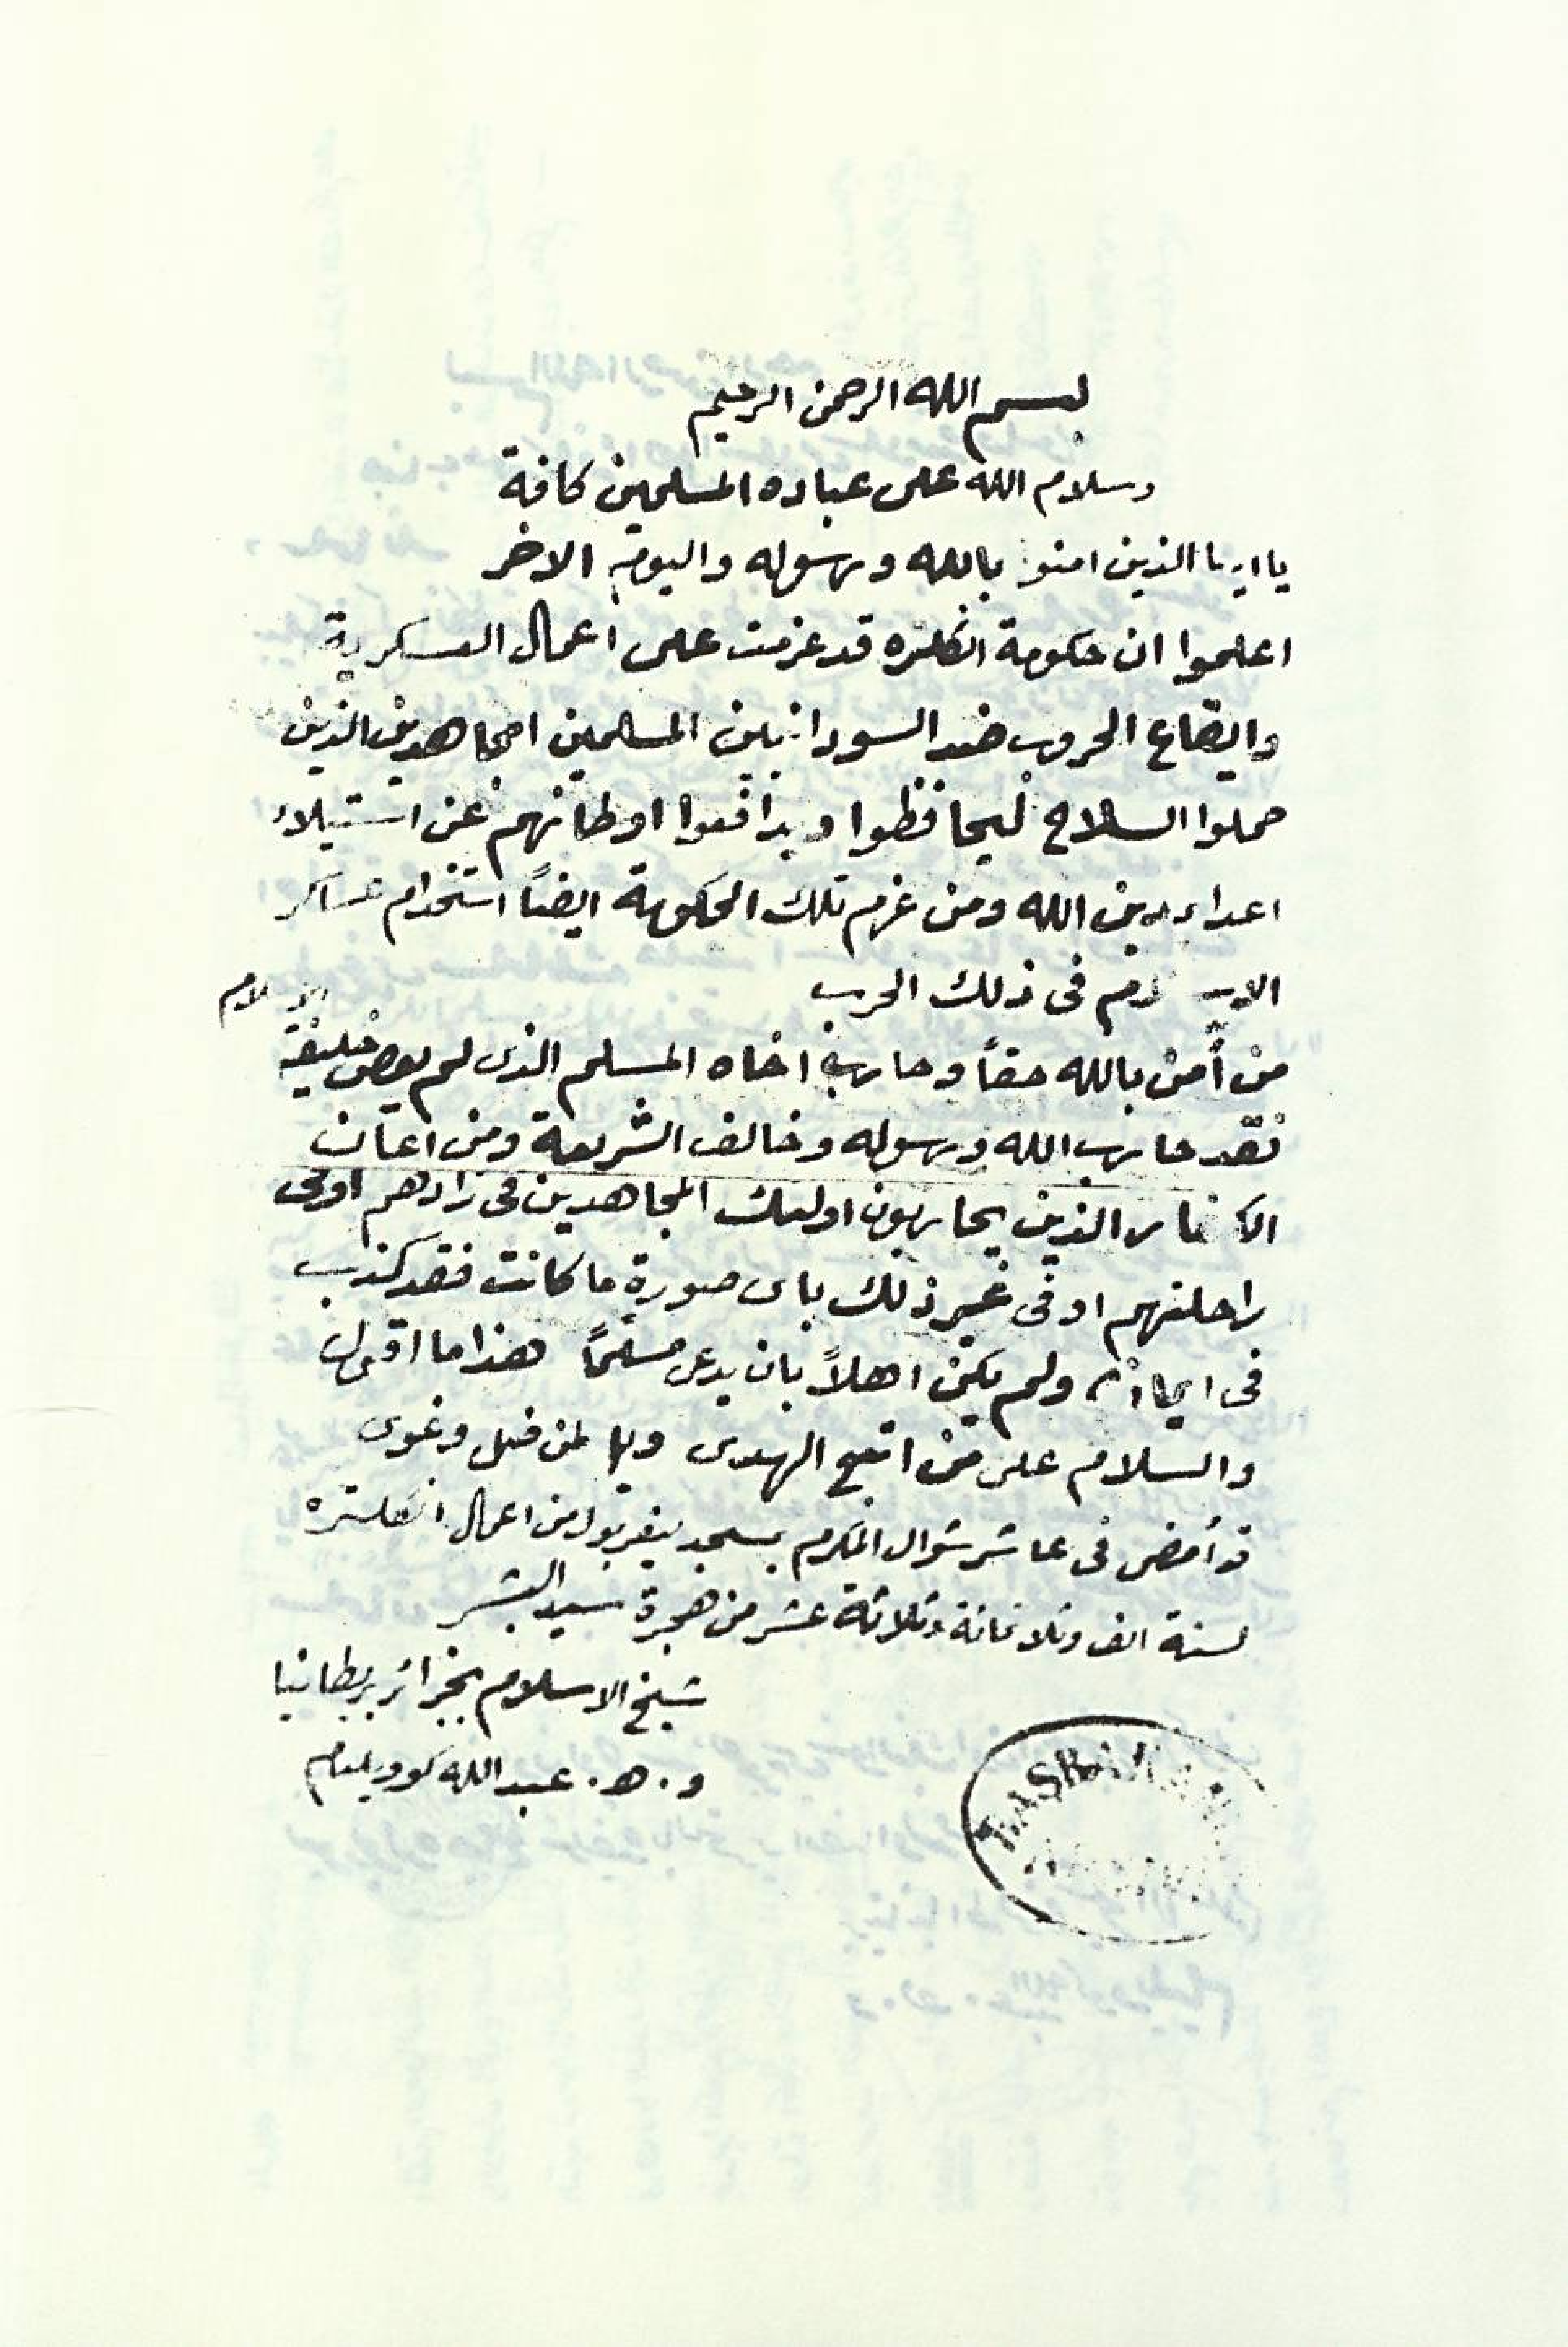 بسم الله الرحمن الرحيم
وسلام الله على عباده المسلمين كافة
يا ايها الذين امنوا بالله ورسوله واليوم الاخر
اعلموا ان حكومة انكلتره قد عزمت على اعمال العسكرية
وايقاع الحروب ضد السودانيين المسلمين المجاهدين الذين
حملوا السلاح ليحافظوا ويدافعوا اوطانهم عن استيلاء
اعداء دين الله ومن عزم تلك الحكومة ايضاً استخدام عساكر
الاسلام فى ذلك الحرب
من أمن بالله حقاً وحارب اخاه المسلم الذى لم يعص خليفة الاسلام
فقد حارب الله ورسوله وخالف الشريعة ومن اعان
الكفار الذين يحاربون اولئك المجاهدين فى زادهم او فى
راحلتهم او فى غير ذلك باى صورة ما كانت فقد كذب
فى ولم يكن اهلاً بان يدعى مسلماً هذا ما اقول
والسلام على من اتبع الهدى لمن ضل وغوى
قد أمضى فى عاشر شوال المكرم بمسجد ليفربول من اعمال انكلتره
لسنة الف وثلاثمائة وثلاثة عشر من هجرة سيد البشر
شيخ الاسلام بجزائر بريطانيا
و . ه . عبد الله كوويليام